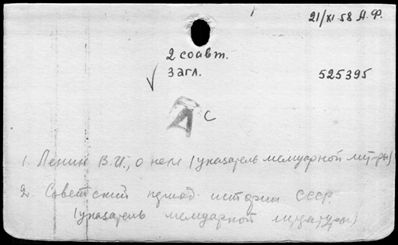 21/XI 58 А.Ф.
2 соавт.
Загл.
525395
С
1. Ленин В.И., о нем (указатель мемуарной лит-ры)
2. Советский период истории СССР
(указатель мемуарной литературы)